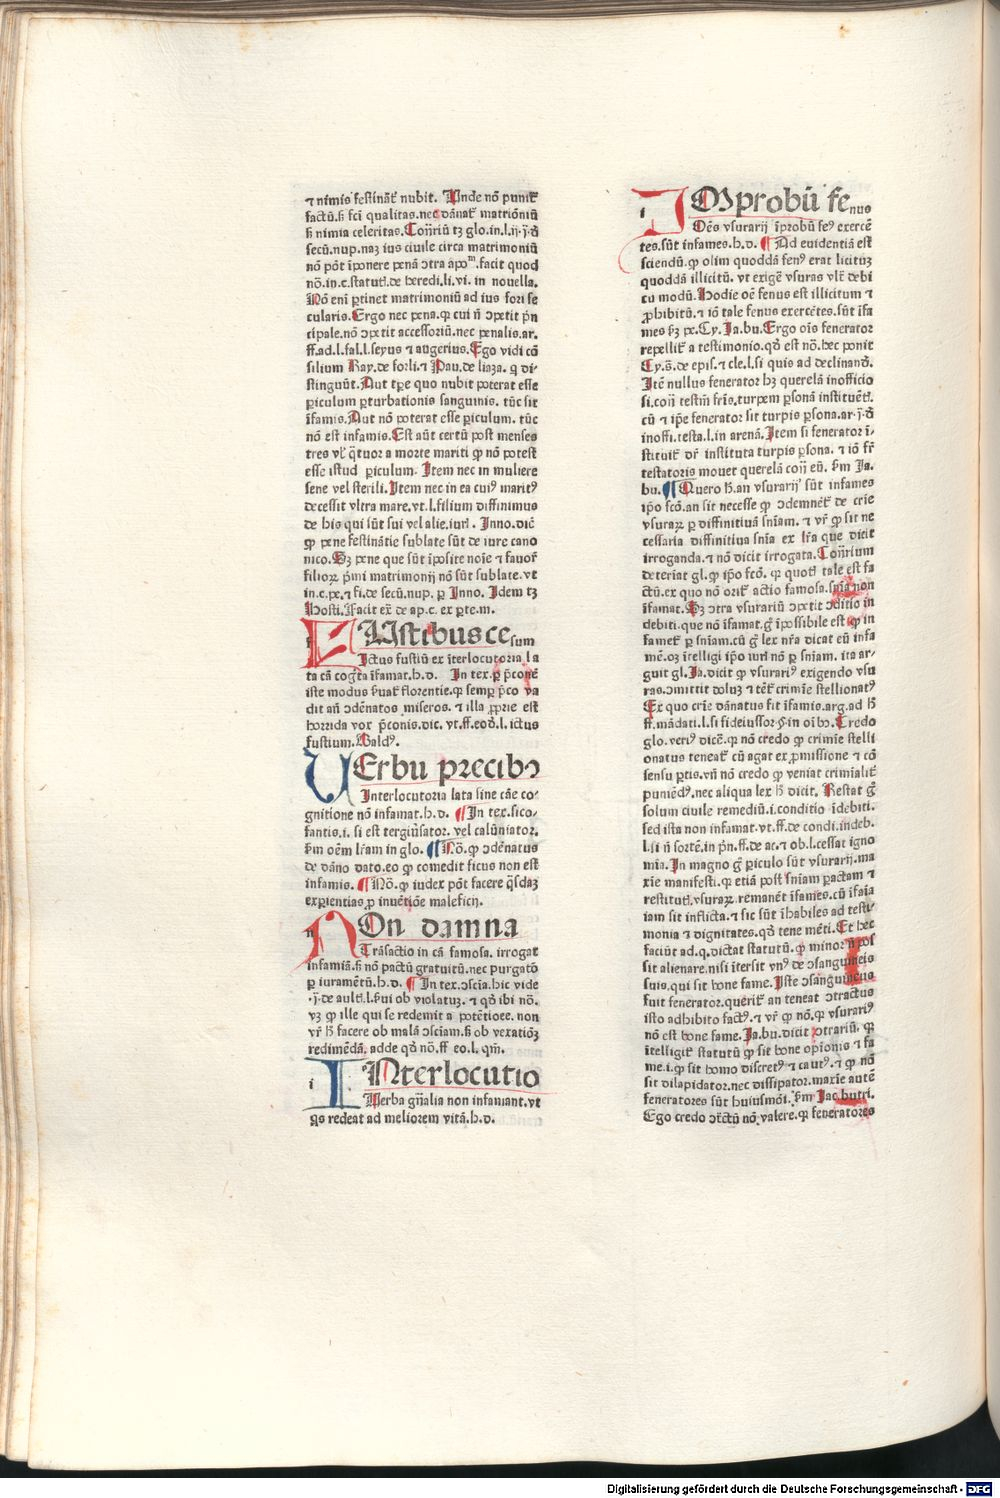 ⁊ nimis festinãt̃ nubit. Unde nõ punit̃
factũ.ß fci qualitas.nec dãnat̃ matriõniũ
ß nimia celeritas.Coñriũ tꝫ glo.in.l.ij.
secũ.nup.naꝫ ius ciuile circa matrimoniũ
nõ põt iponere penã ↄtra apoᵐ.facit quod
nõ.in.c.statutꝭ.de heredi.li.vi. in nouella.
Nõ eni ꝑtinet matrimoniũ ad ius fori se
cularis.Ergo nec pena.qꝛ cui ñ ↄpetit p̃n
cipale.nõ ↄpetit accessoriũ.nec penalis.ar.
ff.ad.l.fal.l.seyus ⁊ augerius.Ego vidi cõ
silium Ray.de forli.⁊ Pau.de liaza. q di-
stinguũt.Aut tꝑe quo nubit poterat esse
ꝑiculum ꝑturbationis sanguinis. tũc sit
ĩfamis.Aut nõ poterat esse ꝑiculum. tũc
nõ est infamis.Est aũt certũ post menses
tres vl' q̃tuor a morte mariti ꝙ nõ potest
esse istud ꝑiculum. Item nec in muliere
sene vel sterili.Item nec in ea cuiꝰ maritꝰ
decessit vltra mare.vt.l.filium diffinimus
de his qui sũt sui vel alie.iurꝭ. Inno.dic̃
ꝙ pene festinãtie sublate sũt de iure cano
nico.Sꝫ pene que sũt iposite noĩe ⁊ fauor̃
filioꝝ p̃mi matrimonij nõ sũt sublate.vt
in.c.pe.⁊ fi.de secũ.nup. ꝑ Inno. Idem tꝫ
Hosti.Facit ex̃ de ap.c. ex ꝑte.m.
f
FUstibus cesum
Ictus fustiũ ex ĩterlocutoria la
ta cã cog̃ta ĩfamat.h.d. In tex.ꝑ p̃conẽ
iste modus ẜuat̃ florentie.qꝛ semꝑ p̃co va
dit añ ↄdẽnatos miseros. ⁊ illa ꝓprie est
horrida vox p̃conis.dic. vt.ff.eoᵭ.l. ictus
fustium.Baldꝰ.
UErbu precibꝰ
Interlocutoria lata sine cãe co-
gnitione nõ infamat.h.d. ¶In tex.sico-
fantis.i. si est tergiũsator. vel calũniator.
ẜm oẽm lr̃am in glo. ¶Nõ. ꝙ ↄdẽnatus
de dãno dato.eo ꝙ comedit ficus non est
infamis. ¶Nõ.ꝙ iudex põt facere q̃sdaꝫ
exꝑientias ꝓ inuẽtiõe maleficij.
n
NOn damna
Trãsactio in cã famosa. irrogat
infamiã.ß nõ pactũ gratuitũ.nec purgatõ
ꝑ iuramẽtũ.h.d. ¶In tex.ↄscĩa.hic vide
.l.ẜui ob violatuꝫ. ⁊ qᵭ ibi nõ.
vꝫ ꝙ ille qui se redemit a potẽtioree. non
vr̃ ℏ facere ob malã ↄsciam.ß ob vexatiõꝫ
redimẽdã. adde qᵭ nõ.ff eo.l. qm̃.
i
INterlocutio
Verba gñalia non infamant.vt
ꝗs redeat ad meliorem vitã.h.d.
i
IMprobũ fenus
Oẽs vsurarij ĩprobũ feꝰ exercẽ
tes.sũt infames.h.d. ¶Ad euidentiã est
sciendũ.ꝙ olim quoddã fenꝰ erat licituꝫ
quoddã illicitũ. vt exigẽ vsuras vlt̃ debi
tũ modũ.Hodie oẽ fenus est illicitum ⁊
ꝓhibitũ.⁊ iõ tale fenus exercẽtes.sũt ĩfa
mes ẜꝫ pe.Cy. Ja.bu.Ergo oĩs fenerator
repellit̃ a testimonio.qᵭ est nõ.hec ponit
Cy.§.de epis.⁊ cle.l.si quis ad declinanᵭ.
Itẽ nullus fenerator hꝫ querelã inofficio
si.coñ testm̃ fr̃is.turpem ꝑsonã instituẽtꝭ.
cũ ⁊ ip̃e fenerator sit turpis ꝑsona.
inoffi.testa.l.in arenã.Item si fenerator ĩ-
stituit̃ dr̃ instituta turpis ꝑsona. ⁊ iõ fr̃
testatoris mouet querelã coñ eũ. ẜm Ja.
bu.¶Quero ℏ.an vsurarij sũt infames
ip̃o fcõ.an sit necesse ꝙ ↄdemnẽt̃ de crĩe
vsuraꝝ ꝑ diffinitiuã sñiam. ⁊ vr̃ ꝙ sit ne
cessaria diffinitiua sñia ex lr̃a que dicit
irroganda.⁊ nõ dicit irrogata.Coñrium
deteriat gl.ꝙ ip̃o fcõ. qꝛ quotꝭ tale est fa
ctũ.ex quo nõ orit̃ actio famosa.sñia non
ĩfamat.Sꝫ ↄtra vsurariũ ↄpetit ↄditio in
debiti.que nõ ĩfamat.g̃ ĩpossibile est ꝙ in
famet̃ ꝑ sñiam.cũ g̃ lex nr̃a dicat eũ infa
mẽ.oꝫ ĩtelligi ip̃o iuri nõ ꝑ sñiam. ita ar-
guit gl.Ja.dicit ꝙ vsurariꝰ exigendo vsu
ras.ↄmittit doluꝫ ⁊ tẽt̃ crimĩe stellionatꝰ
Ex quo crĩe dãnatus fit ĩfamis.arg.ad ℏ
ff.mãdati.l.si fideiussor.§.in oĩbꝰ.Credo
glo.veriꝰ dicẽ.qꝛ nõ credo ꝙ crimĩe stelli
onatus teneat̃ cũ agat ex ꝑmissione ⁊ cõ
sensu ꝑtis.vñ nõ credo ꝙ veniat crimĩalit̃
puniẽdꝰ.nec aliqua lex ℏ dicit. Restat g̃
solum ciuile remediũ.i.conditio ĩdebiti.
sed ista non infamat.vt.ff.de condi.indeb.
l.si ñ sortẽ.in p̃n.ff.de ac.⁊ ob.l.cessat igno
mĩa.In magno g̃ ꝑiculo sũt vsurarij.ma
xĩe manifesti.qꝛ etiã post sñiam ꝑactam ⁊
restitutꝭ.vsuraꝝ.remanẽt ĩfames.cũ ĩfaĩa
iam sit inflicta.⁊ sic sũt ĩhabiles ad testi-
monia ⁊ dignitates.qᵭ tene mẽti.Et hec
faciũt ad.q.dictat statutũ.ꝙ minor ñ pos
sit alienare.nisi ĩtersit vnꝰ de ↄsanguineis
suis.qui sit bone fame.Iste ↄsanguineus
fuit fenerator.querit̃ an teneat ↄtractus
isto adhibito factꝰ.⁊ vr̃ ꝙ nõ.ꝙ vsurariꝰ
nõ est bone fame.Ja.bu.dicit ↄtrariũ. qꝛ
ĩtelligit̃ statutũ ꝙ sit bone opionis ⁊ fa
me.i.ꝙ sit homo discretꝰ ⁊ cautꝰ.⁊ ꝙ nõ
sit dilapidator.nec dissipator.maxĩe autẽ
feneratores sũt huiusmõi. ẜm Jac.butri.
Ego credo ↄr̃ctũ nõ valere.qꝛ feneratores
Digitalisierung gefördert durch die Deutsche Forschungsgemeinschaft - DFG